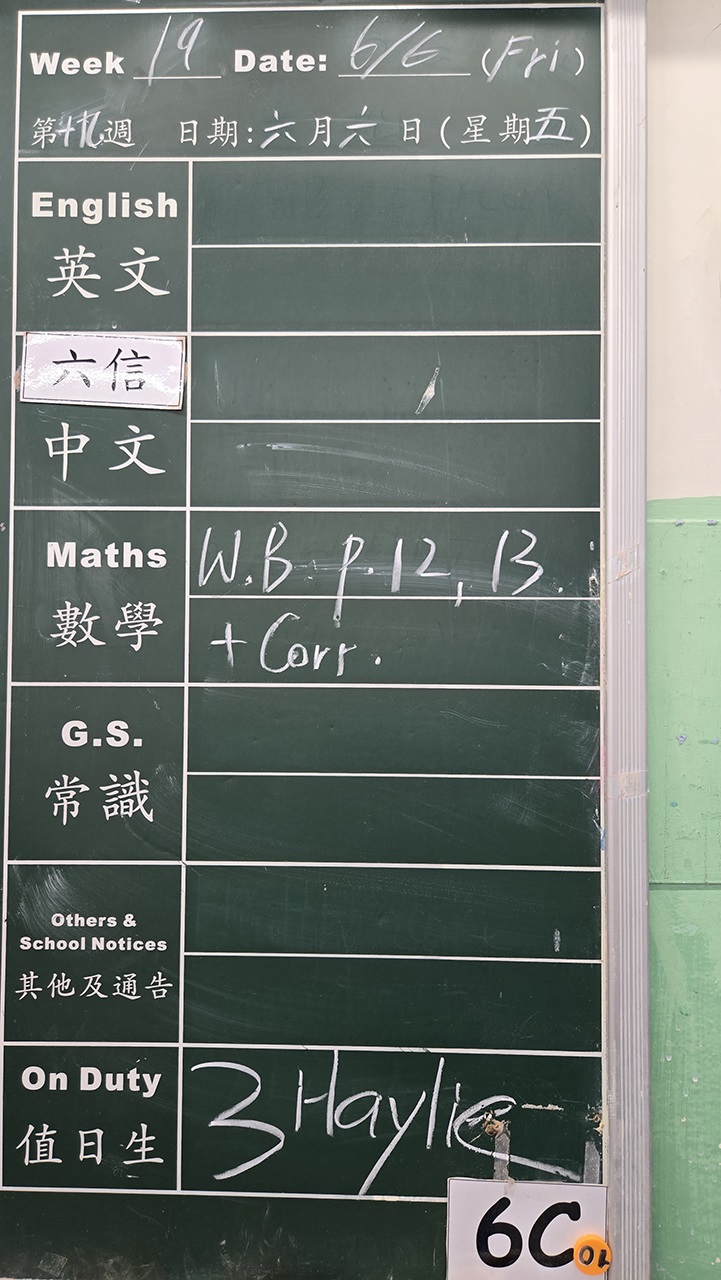 Week 19 Date: 6/6 (Fri)
第十九週 日期:六月六日(星期五)
English
英文
六信
中文
Maths W.B p.12, 13.
數學 + Corr.
G.S.
常識
Others &
School Notices
其他及通告
On Duty 3 Haylie
值日生
6C